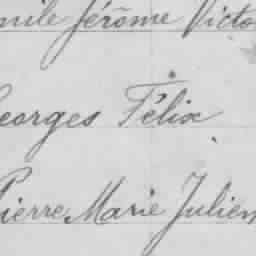 mile Jérôme Victo
eorges Félix
Pierre Marie Julien